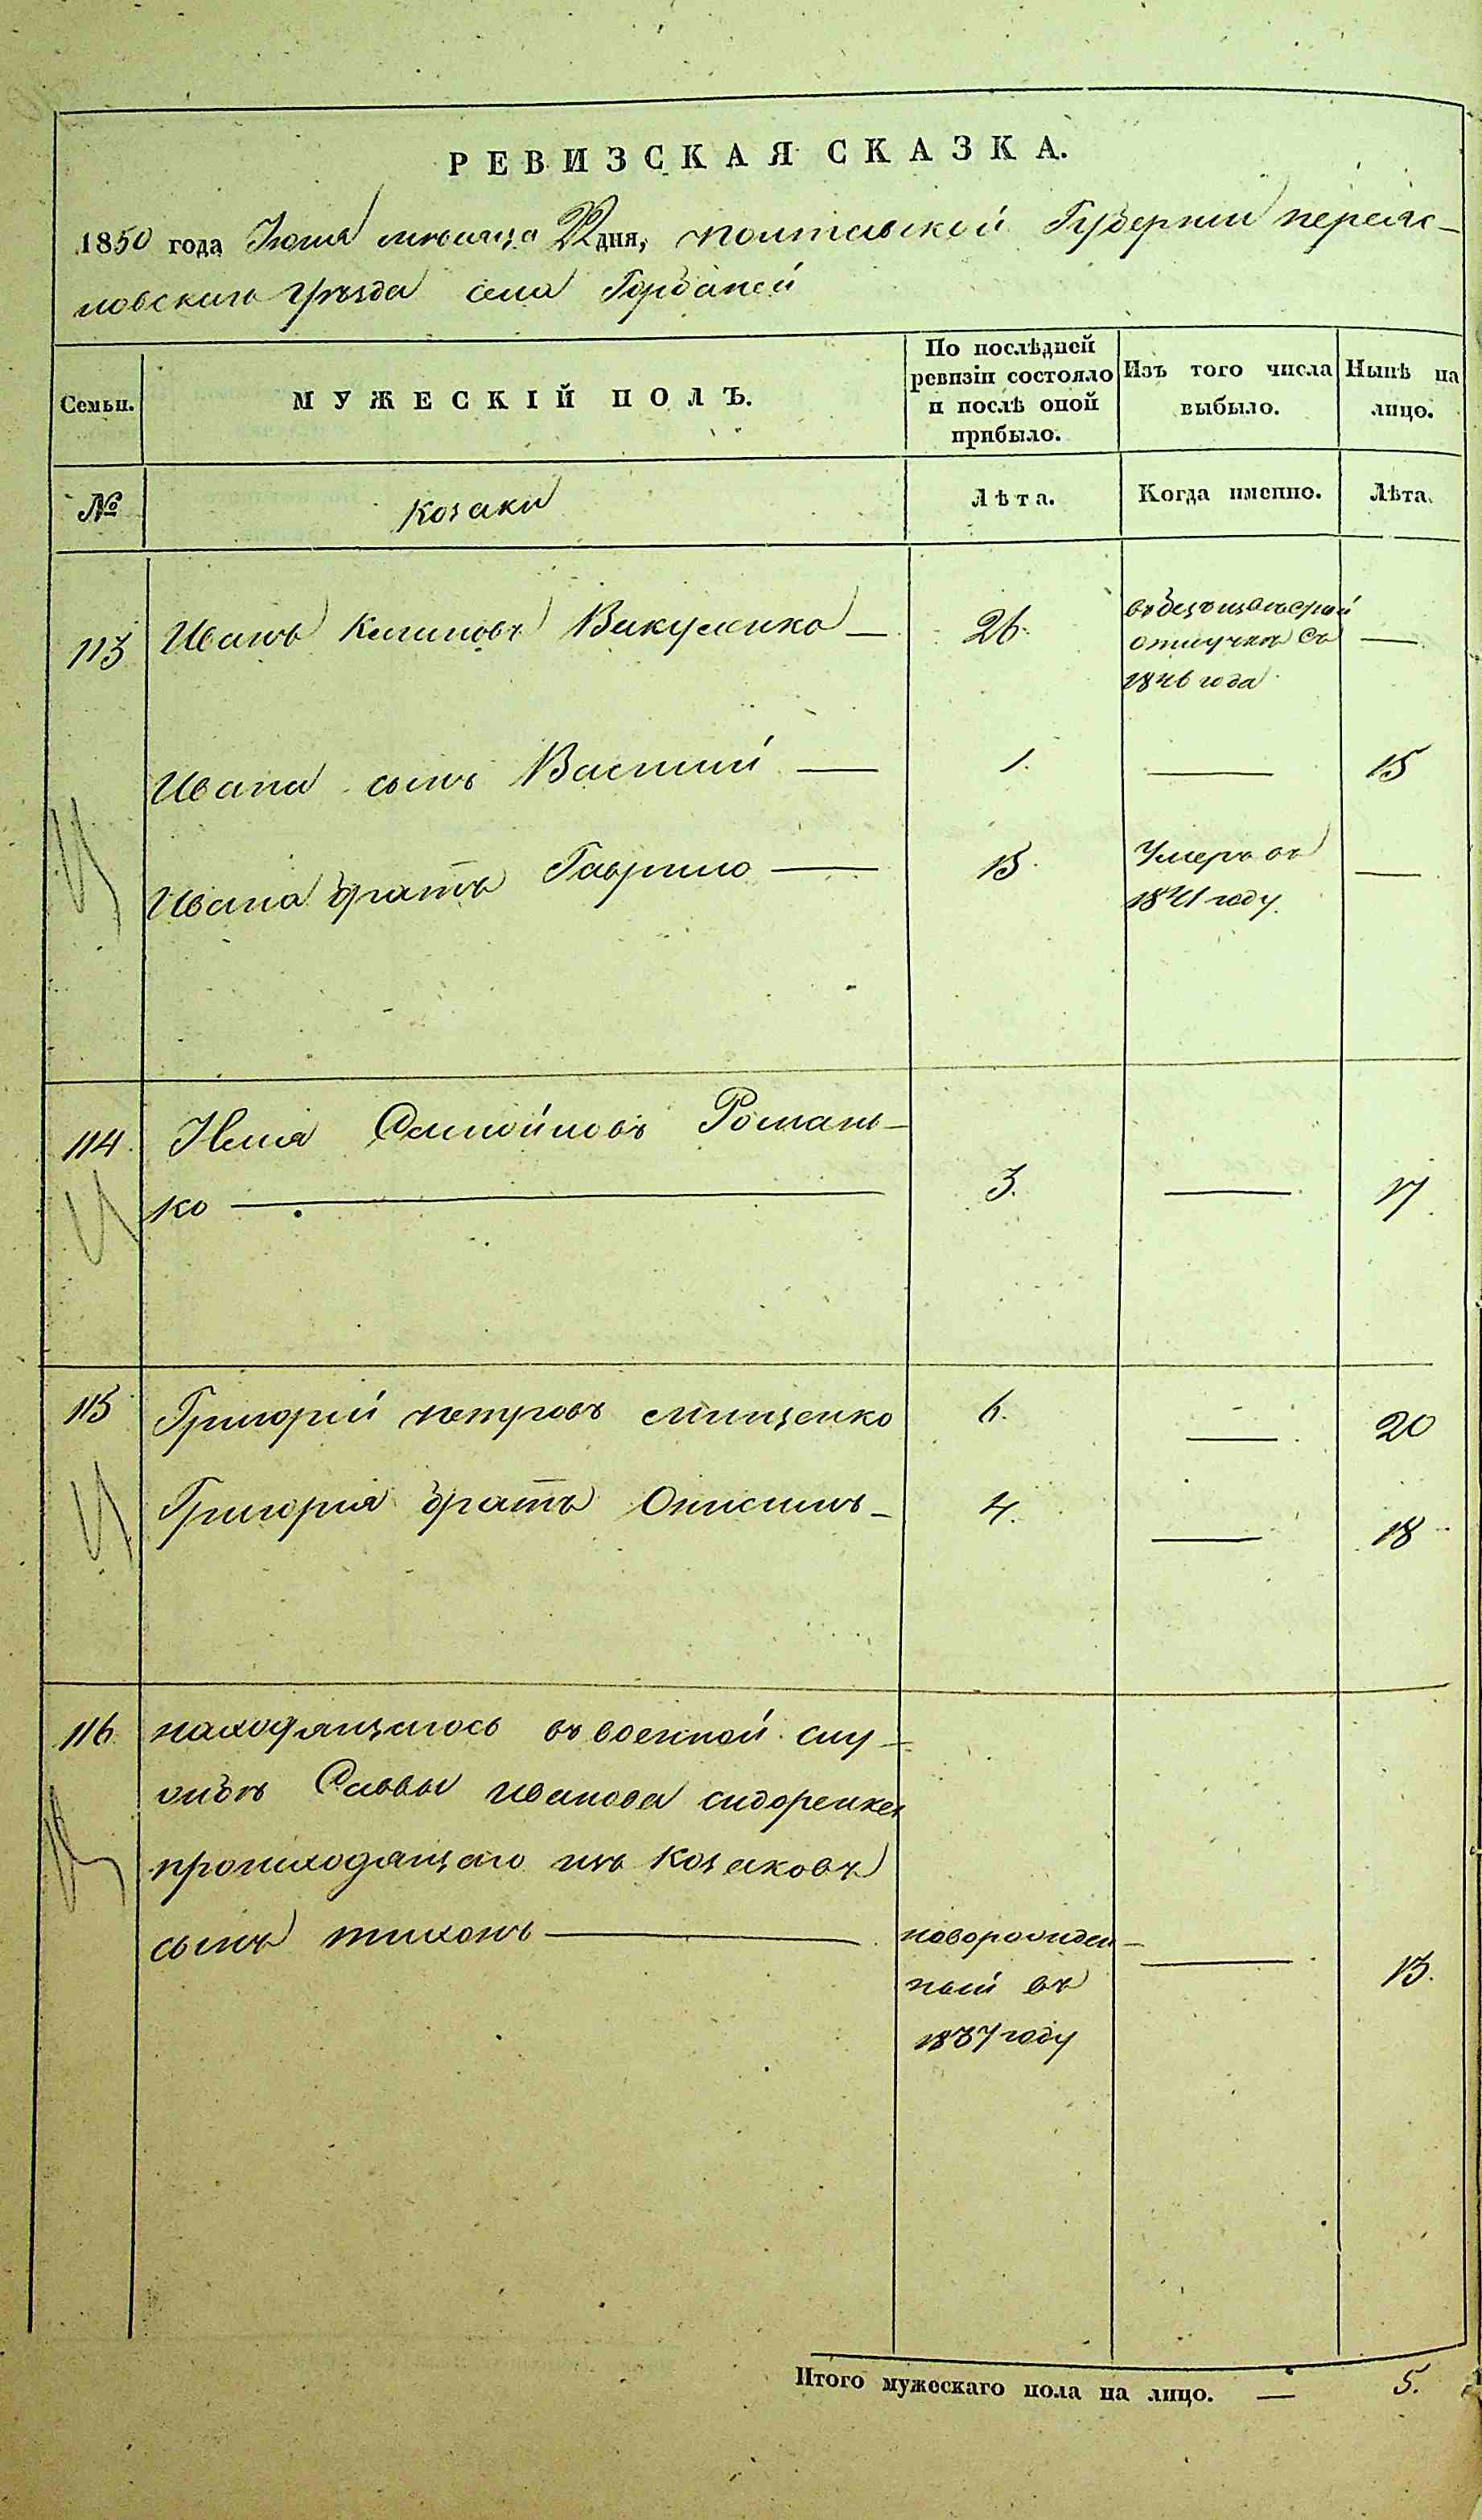 РЕВИЗСКАЯ СКАЗКА.
1850 года Июня мѣсяца 22 дня, Полтавской Губерніи переяс-
ловскаго уѣзда села Горбаней
Семьи.
МУЖЕСКІЙ ПОЛЪ.
По послѣдней
ревизіи состояло
и послѣ оной
прибыло.
Изъ того числа
выбыло.
Нынѣ на
лицо.
№
Козаки
Лѣта.
Когда именно.
Лѣта.
113
Иванъ Викуленко —
26.
отлучкѣ съ
1846 года
—
Ивана сынъ Василий —
1.
—
15
Ивана братъ Гаврило —
15.
Умеръ въ
1841 году.
—
114.
Илія Самойловъ Романь-
ко —
3.
—
17.
115
Григорій петровъ мищенко
6.
—
20
Григорія братъ Онисимъ —
4.
—
18
116.
находящагося въ военной слу-
жбѣ Саввы иванова сидоренка
происходящаго изъ козаковъ
сынъ тихонъ —
новорожден-
ный въ
1837 году
—
13.
Итого мужескаго пола на лицо. — 5.